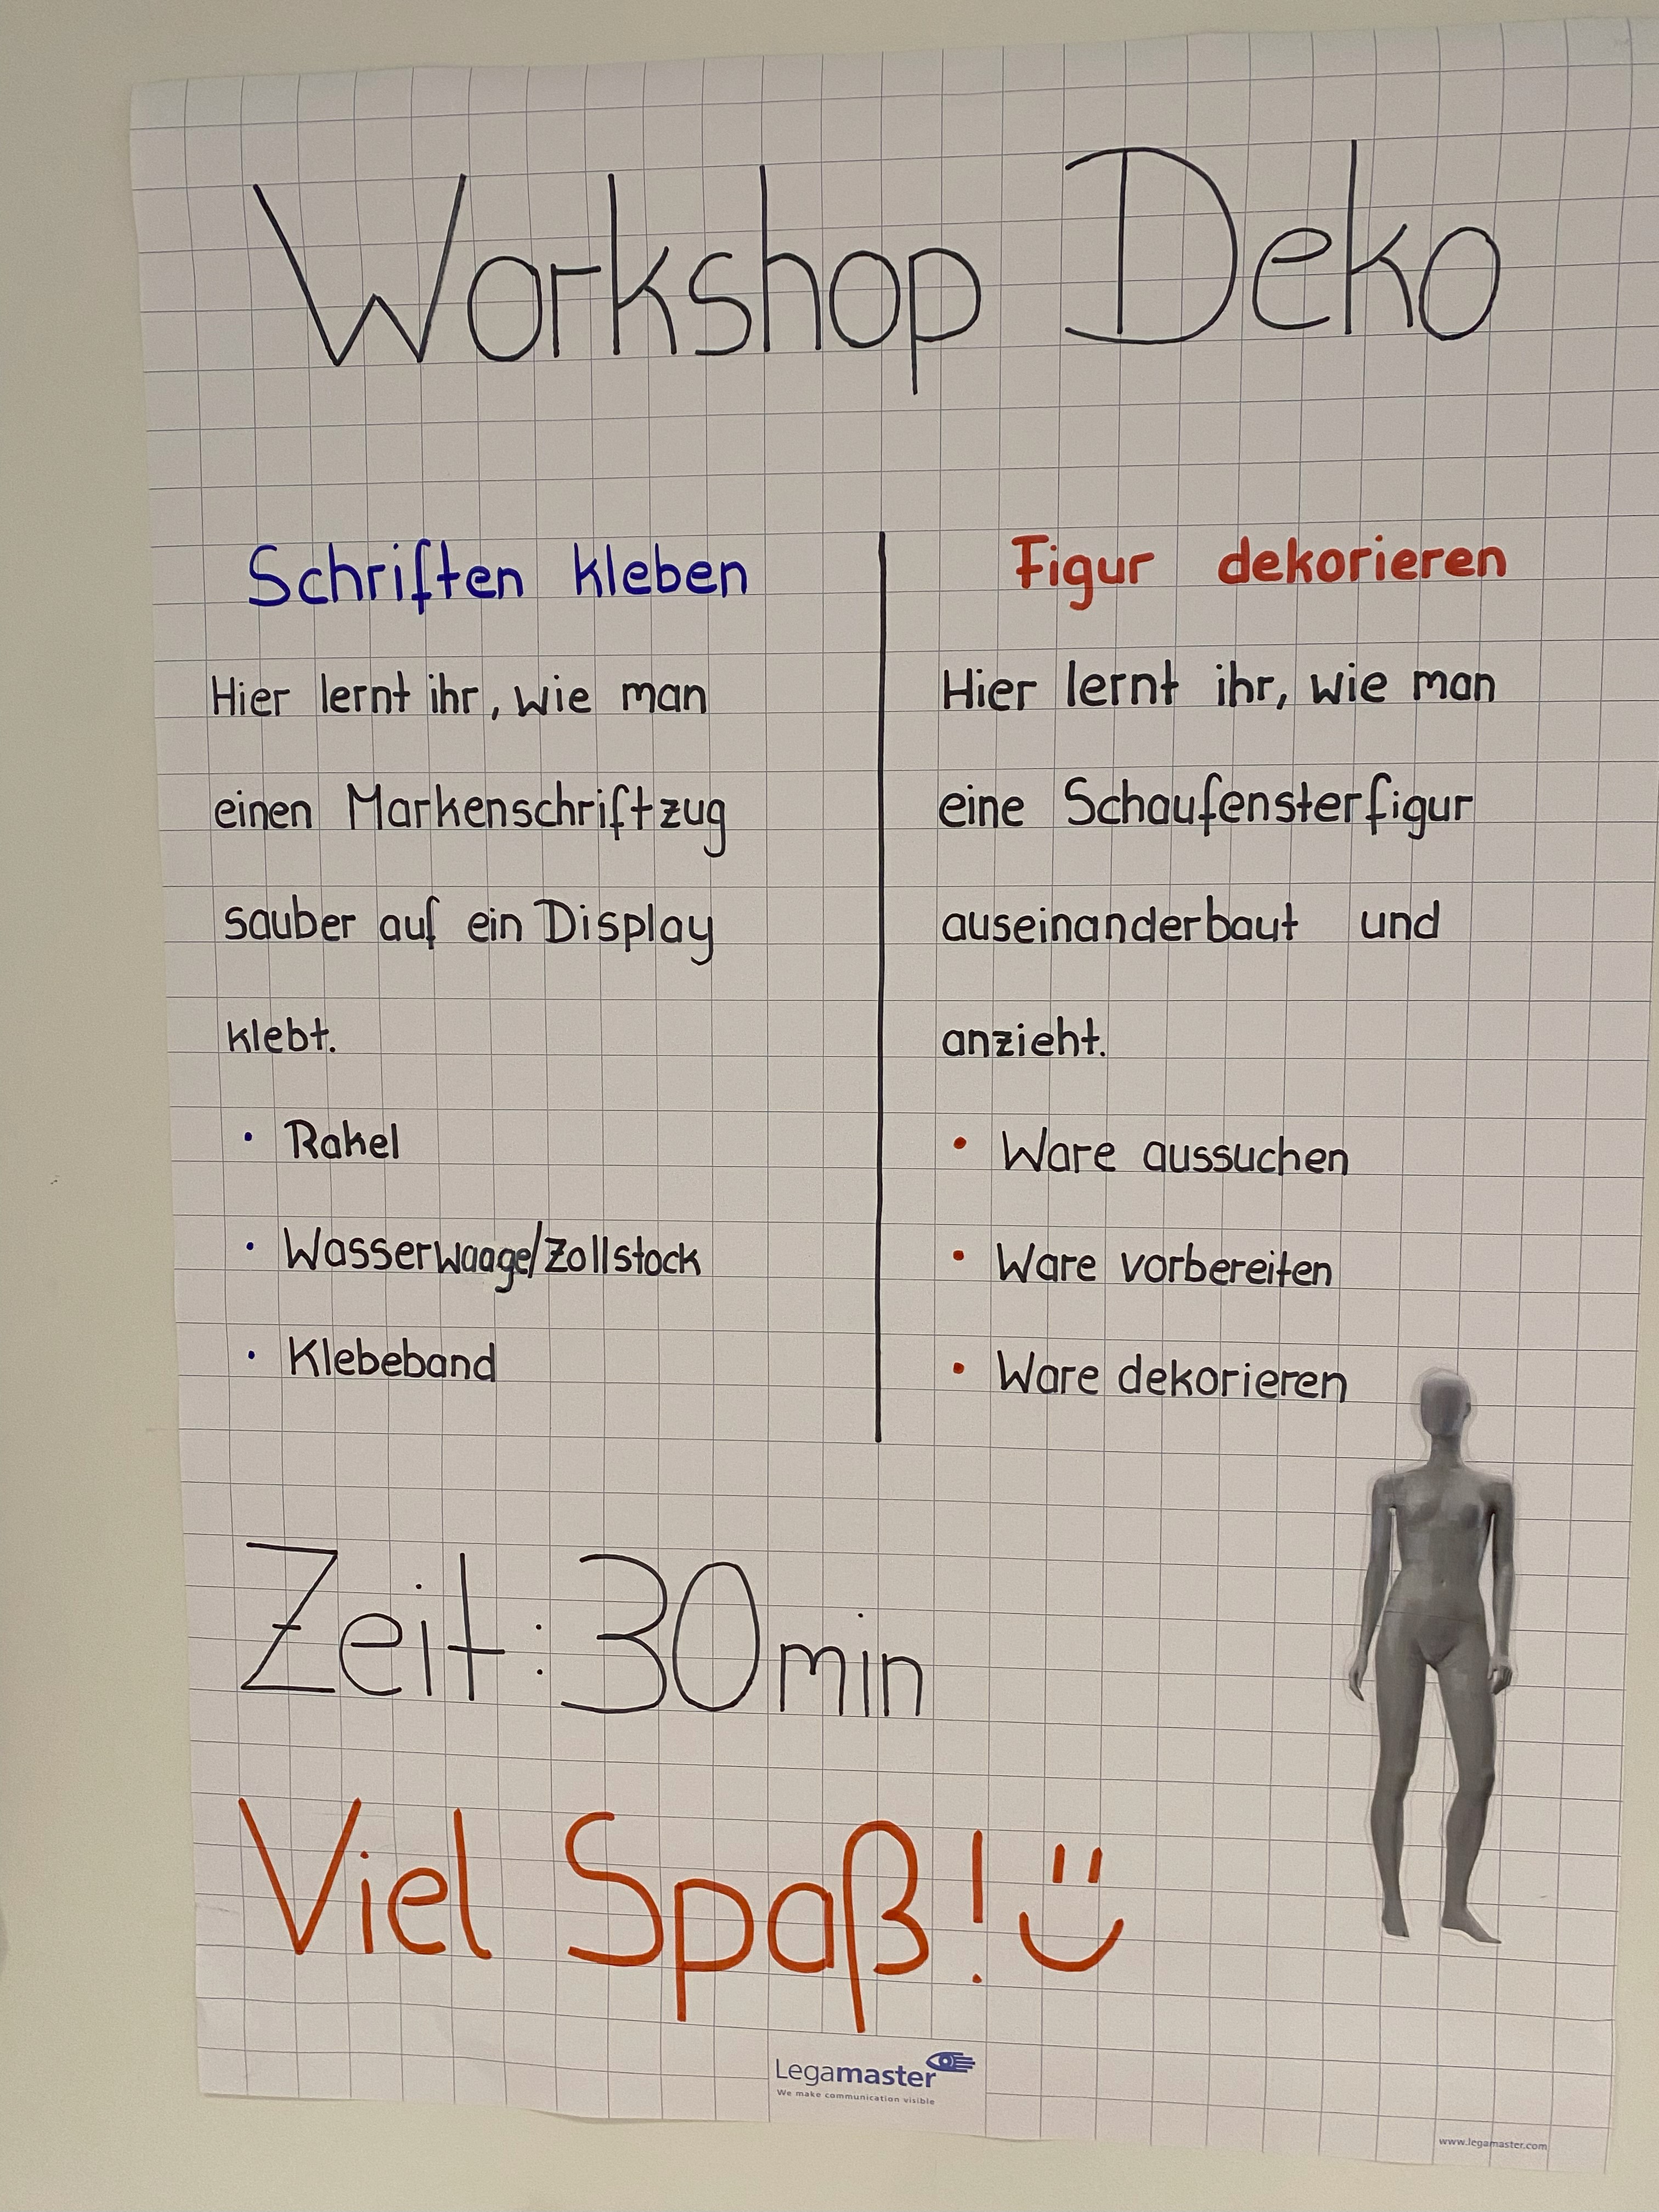 Workshop Deko
Schriften kleben
Hier lernt ihr, wie man
einen Markenschriftzug
sauber auf ein Display
klebt.
• Rakel
• Wasserwaage/Zollstock
• Klebeband
Figur dekorieren
Hier lernt ihr, wie man
eine Schaufensterfigur
auseinanderbaut und
anzieht.
• Ware aussuchen
• Ware vorbereiten
• Ware dekorieren
Zeit: 30min
Viel Spaß!
Legamaster
We make communication visible
www.legamaster.com